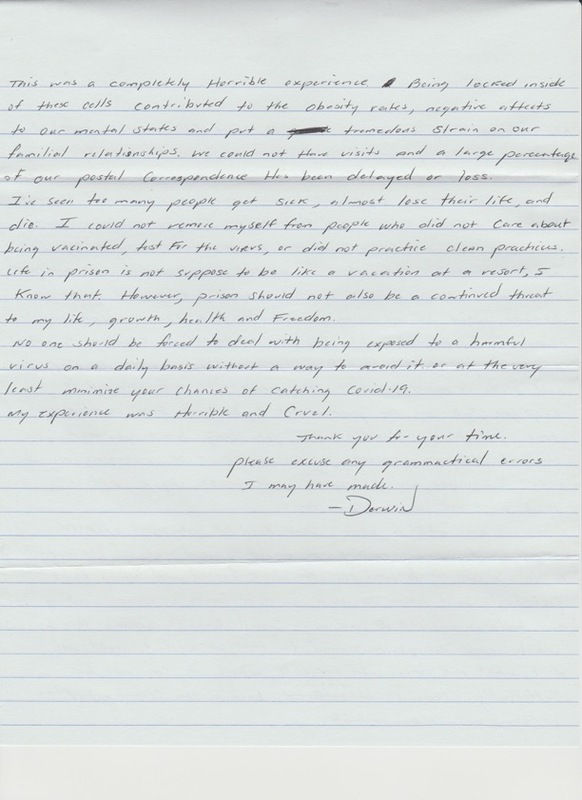 This was a completely Horrible experience. Being locked inside
of these cells contributed to the obesity rates, negative affects
to our mental states and put a tremedous strain on our
familial relationships. We could not Have visits and a large percentage
of our postal Correspondence Has been delayed or loss.
I've seen too many people get sick, almost lose their life, and
die. I could not remove myself from people who did not Care about
being vacinated, test For the virus, or did not practice clean practices.
Life in prison is not suppose to be like a vacation at a resort, I
Know that. However, prison should not also be a continued threat
to my life, growth, health and Freedom.
No one should be forced to deal with being exposed to a harmful
virus on a daily basis without a way to avoid it or at the very
least minimize your chances of catching Covid-19.
My experience was Horrible and Cruel.
Thank you for your time.
Please excuse any grammactical errors
I may have made.
-Darwin